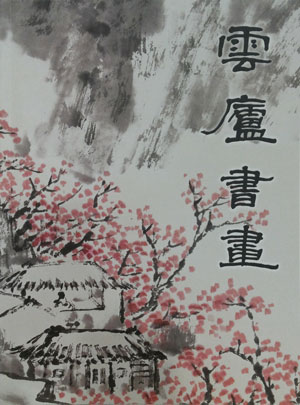 雲廬書畫